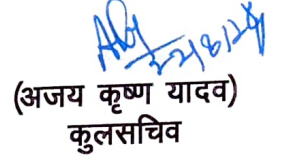 (अजय कृष्ण यादव)
कुलसचिव